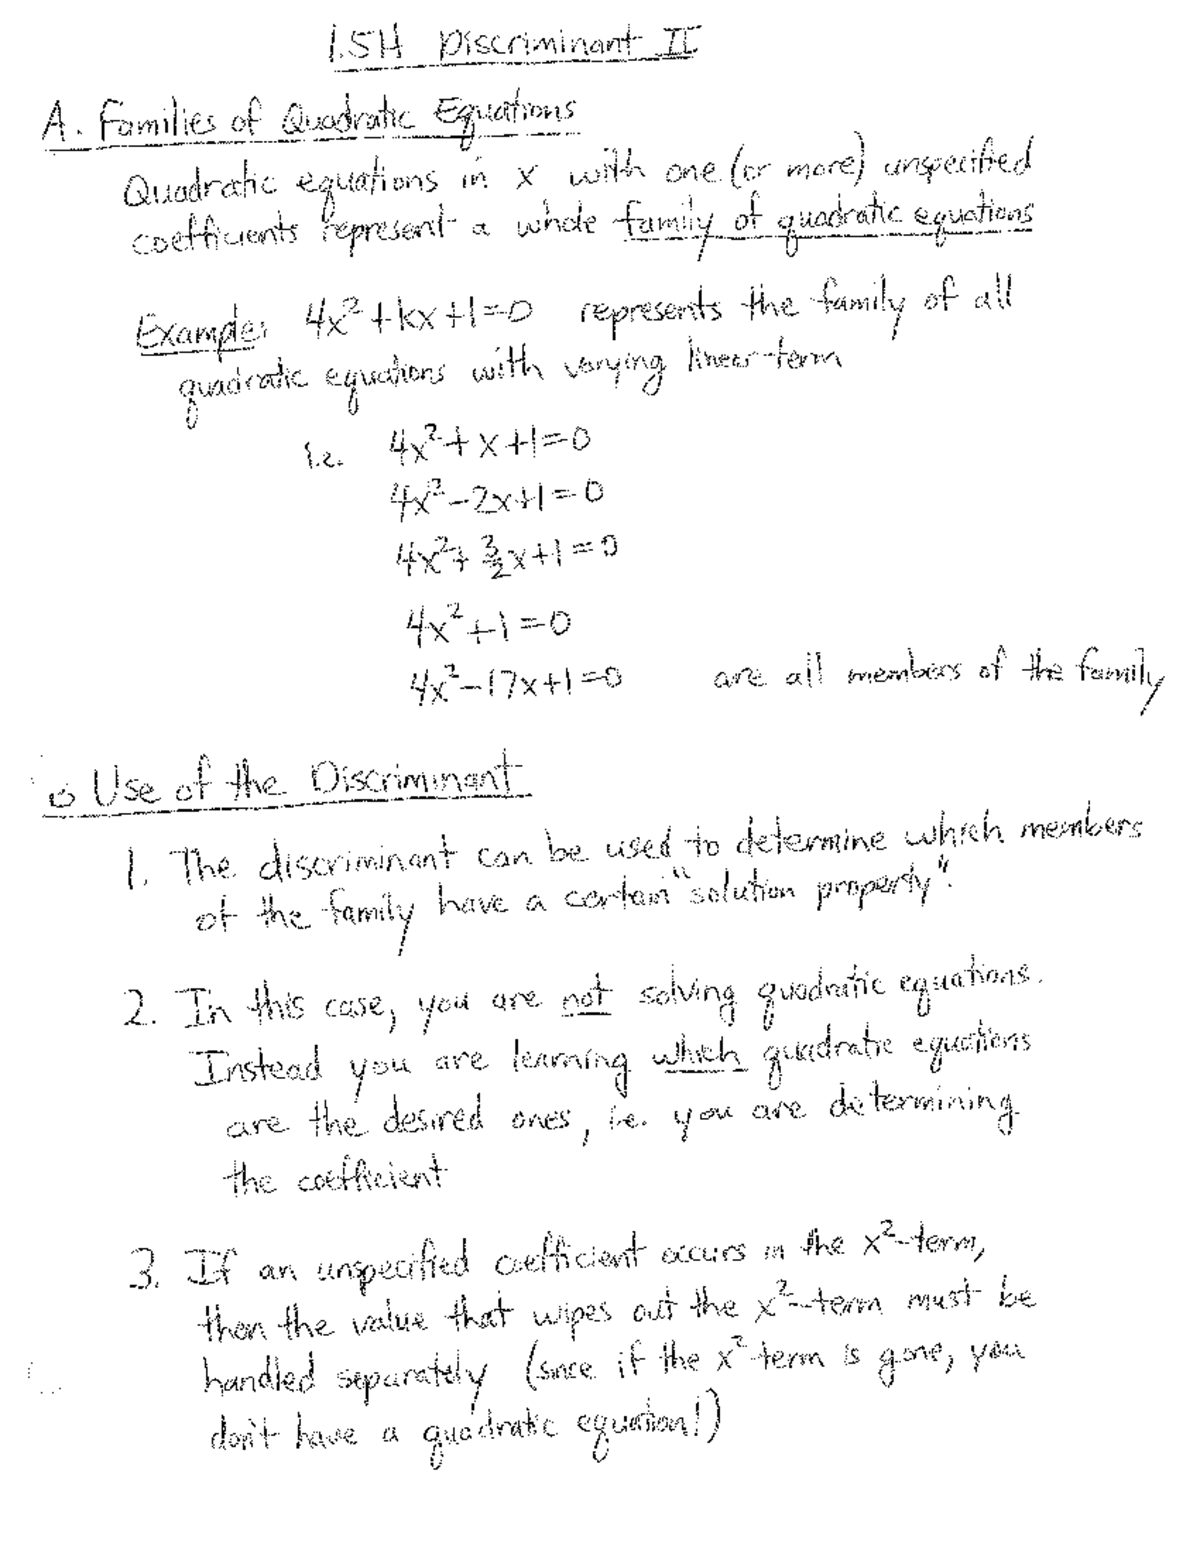 1.5H Discriminant II
A. Families of Quadratic Equations
Quadratic equations in x with one (or more) unspecified
coefficients represent a whole family of quadratic equations
Example: 4x²+kx+1=0 represents the family of all
quadratic equations with varying linear-term
i.e. 4x²+x+1=0
4x²-2x+1=0
4x²+3/2x+1=0
4x²+1=0
4x²-17x+1=0 are all members of the family
Use of the Discriminant
1. The discriminant can be used to determine which members
of the family have a certain "solution property".
2. In this case, you are not solving quadratic equations.
Instead you are learning which quadratic equations
are the desired ones, i.e. you are determining
the coefficient
3. If an unspecified coefficient occurs in the x²-term,
then the value that wipes out the x²-term must be
handled separately (since if the x²-term is gone, you
don't have a quadratic equation!)